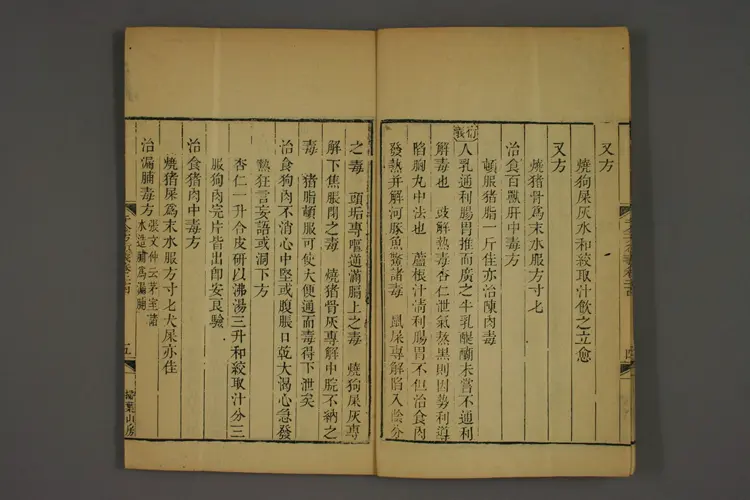 又方
燒狗屎灰水和絞取汁飲之立愈
又方
燒猪骨爲末水服方寸七
治食百獸肝中毒方
頓服猪脂一斤佳亦治陳肉毒
衍義
人乳通利腸胃推而廣之牛乳醍醐未嘗不通利
解毒也 豉解熱毒杏仁泄氣蒸黑則因勢利導
陷胸丸中法也 蘆根汁淸利腸胃不但治食肉
發熱并解河豚魚蟹諸毒 鼠屎專解陷入陰分
之毒 頭垢專壅遏滿膈上之毒 燒狗屎灰專
解下焦脹悶之毒 燒猪骨灰專解中脘不納之
毒 猪脂頓服可使大便通而毒得下泄矣
治食狗肉不消心中堅或腹脹口乾大渴心急發
熱狂言妄語或洞下方
杏仁一升合皮研以沸湯三升和絞取汁分三
服狗肉完片皆出卽安良驗
治食猪肉中毒方
燒猪屎爲末水服方寸七犬屎亦佳
治漏脯毒方
張文仲云茅室諸
水造脯爲漏脯
五
掃葉山房